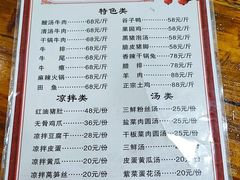 特色类
酸汤牛肉————68元/斤
清汤牛肉————68元/斤
干锅牛肉————68元/斤
牛排————68元/斤
牛尾————68元/斤
牛瘪————68元/斤
麻辣火锅————58元/斤
田鱼————58元/斤
谷子鸭————58元/斤
果园鸡————58元/斤
黑猪泡汤————58元/斤
脆皮猪脚————58元/斤
香辣干锅兔————58元/斤
腊排————58元/斤
羊肉————88元/斤
正宗土鸡————88元/斤
凉拌类
红油猪肚————48元/份
无骨鸡爪————36元/份
凉拌豆腐干————28元/份
凉拌皮蛋————20元/份
凉拌黄瓜————20元/份
凉拌莴笋丝————20元/份
汤类
三鲜粉丝汤————25元/份
盐菜肉圆汤————35元/份
干板菜肉圆汤————35元/份
三鲜汤————25元/份
皮蛋黄瓜汤————25元/份
紫菜蛋花汤————20元/份